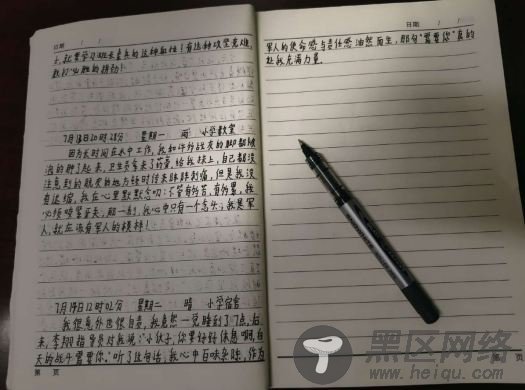 日期 / /
上,就要学习班长素兵的这种血性!有这种攻坚克难、
敢打必胜的精神!
7月13日20时28分 星期一 雨 小学教室
因为长时间在水中工作,我和许多战友的脚都被
泡的肿了起来,卫生员拿来了药膏,给我抹上,自己都没
注意到的脱皮的地方顿时传来阵阵刺痛,但是我没
有退缩,我在心里默默念叨:不管有多苦,有多累,我
必须,那一刻,我心中只有一个念头,我是军
人,就应该有军人的模样!
7月14日12时02分 星期二 晴 小学宿舍
我很意外也很自责,我竟然一觉睡到了7点,后
来,李翔指导员对我说:"小伙子,你要好好休息啊,白
天的战斗需要你。"听了这句话,我心中百味杂陈,作为
第 页
日期 / /
军人的使命感与责任感油然而生,那句"需要你"真的
让我充满力量.
第 页
黑区网络
www.heiqu.com